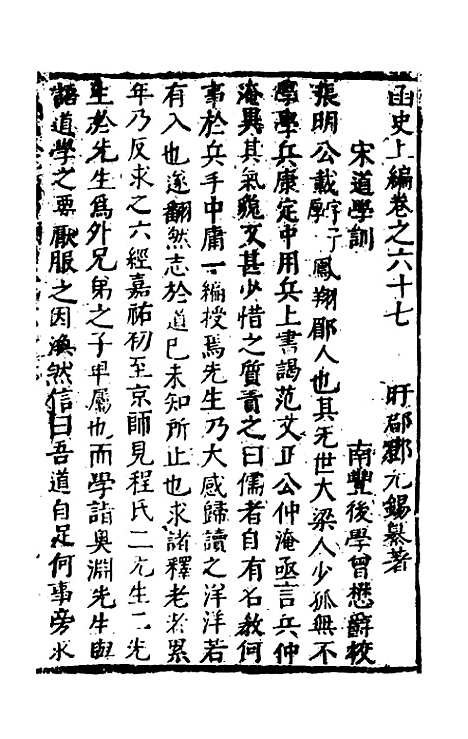 函史上編卷之六十七　　盱郡鄧元錫纂著
宋道學訓　　南豐後學曾懋爵校
張明公載字子厚鳳翔郿人也其先世大梁人少孤無不
學學兵康定中用兵上書謁范文正公仲淹亟言兵仲
淹異其氣貌文甚少惜之質責之曰儒者自有名教何
事於兵手中庸一編授焉先生乃大感歸讀之洋洋若
有入也遂翻然志於道已未知所止也求諸釋老者累
年乃反求之六經嘉祐初至京師見程氏二先生二先
生於先生爲外兄弟之子卑屬也而學詣奥淵先生與
語道學之要厭服之因渙然信曰吾道自足何事旁求